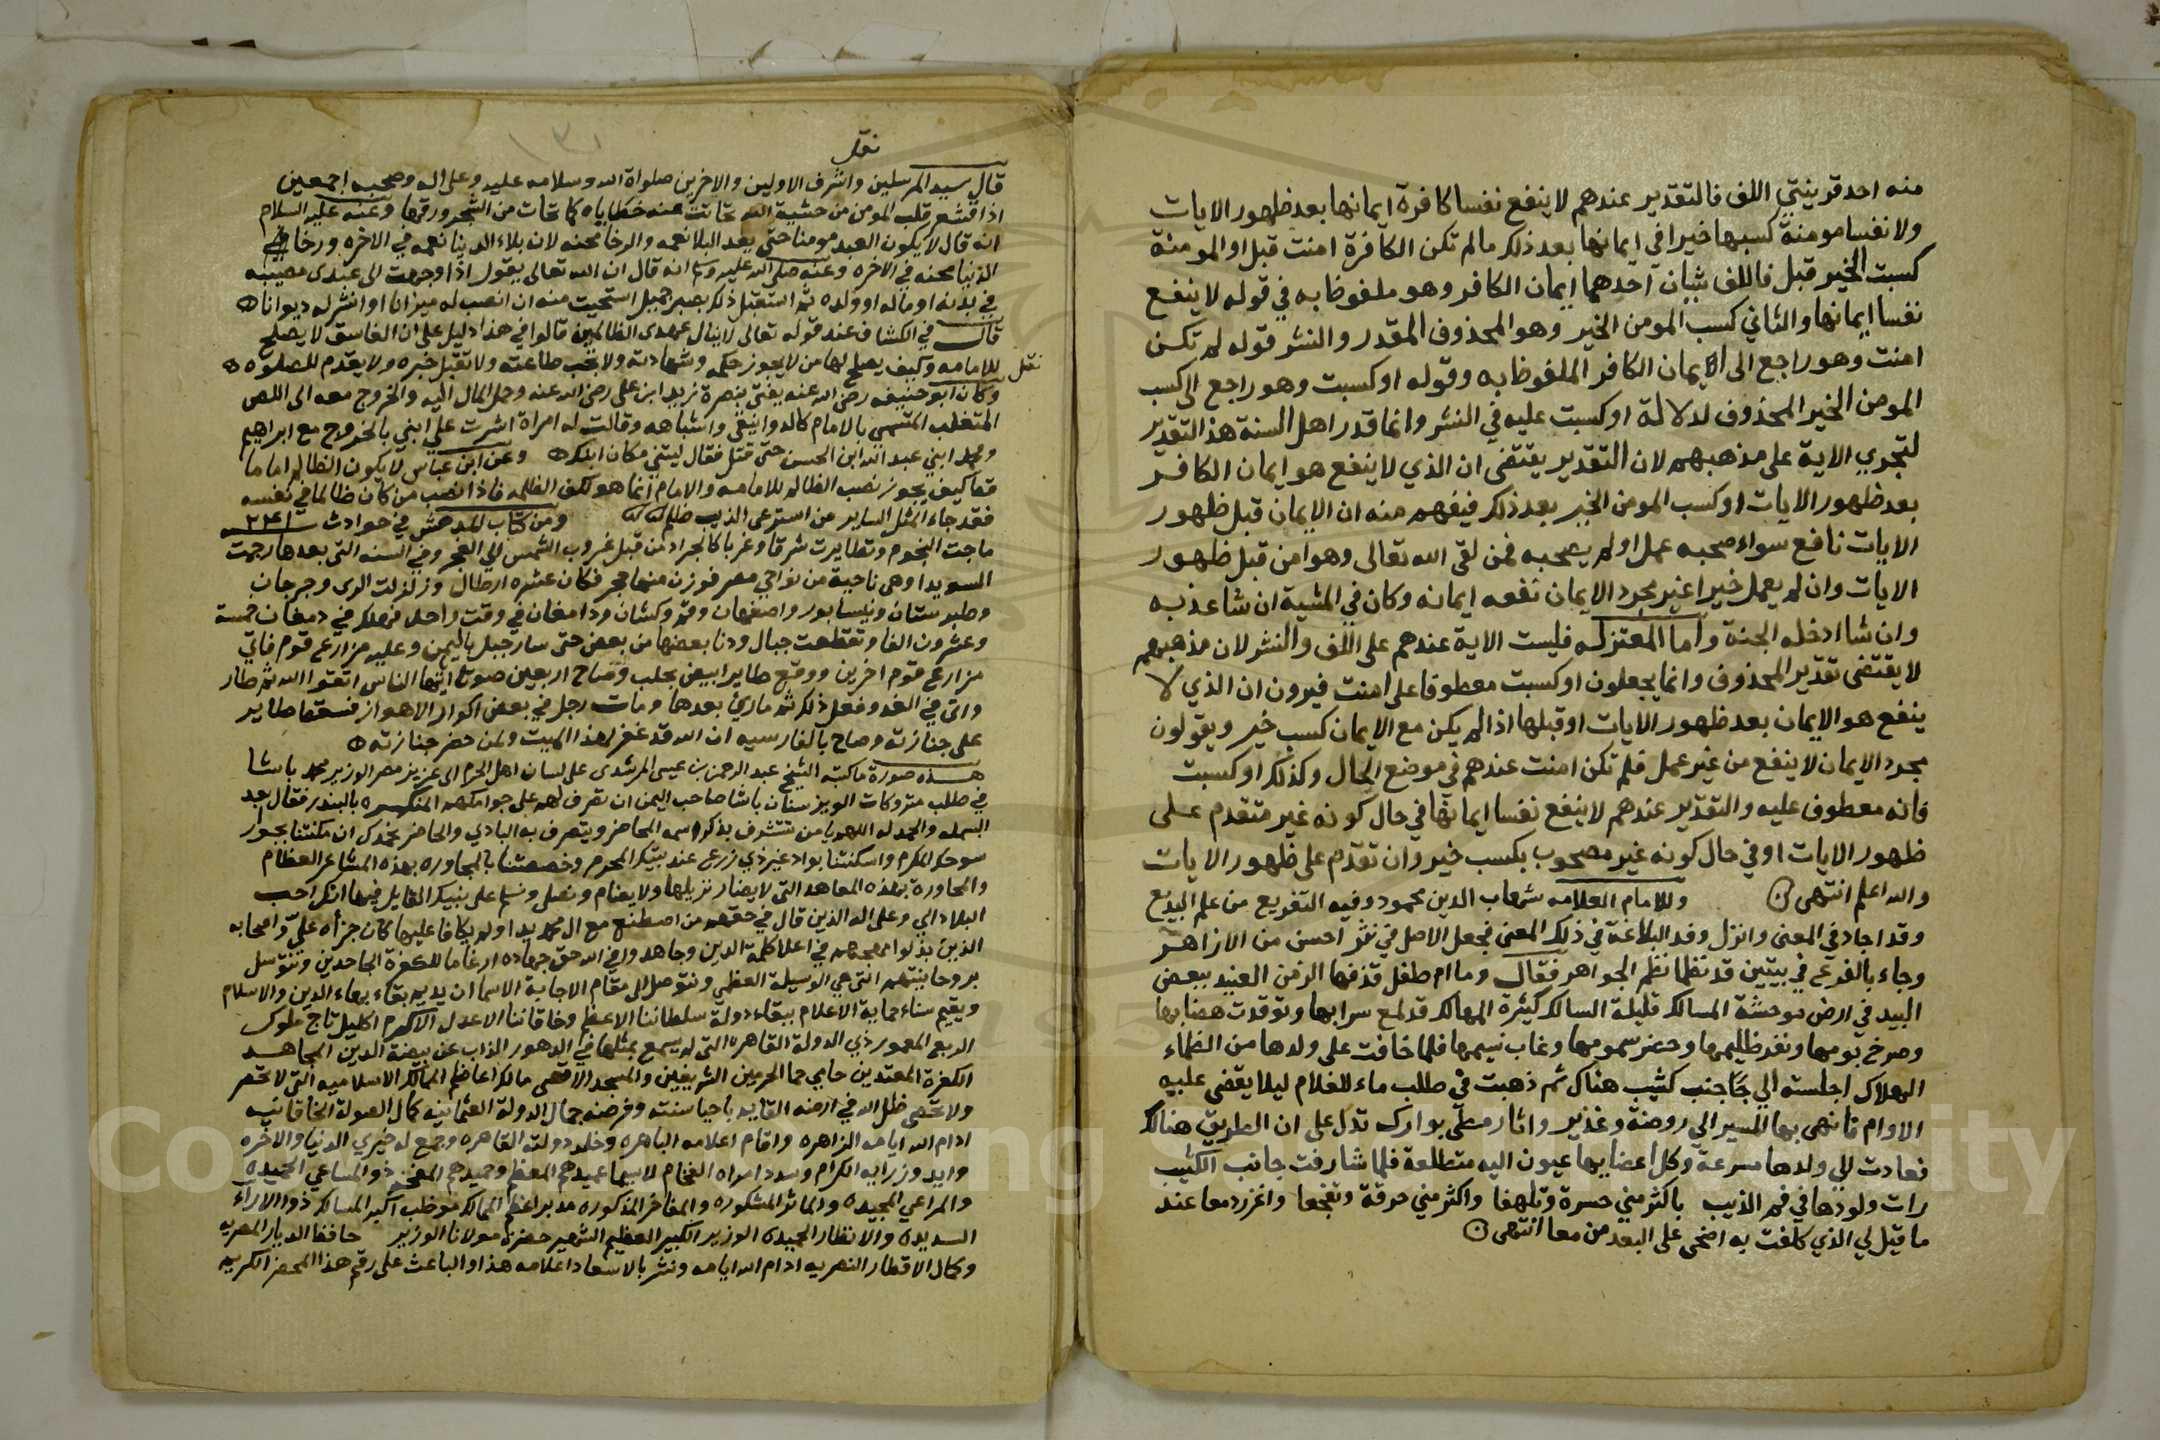 منه احد قرينتي اللف فالتقدير عندهم لا ينفع نفسا كافرة ايمانها بعد ظهور الايات
ولا نفسا مومنة كسبها خيرا في ايمانها بعد ذلك ما لم تكن الكافرة امنت قبل او المومنة
كسبت الخير قبل فاللف شيان احدهما ايمان الكافر وهو ملفوظا به في قوله لا ينفع
نفسا ايمانها والثاني كسب المومن الخير وهو المحذوف المقدر والنشر قوله لم تكن
امنت وهو راجع الى الايمان الكافر الملفوظ به وقوله او كسبت وهو راجع الى كسب
المومن الخير المحذوف لدلالة او كسبت عليه في النشر وانما قدر اهل السنة هذا التقدير
لتجري الاية على مذهبهم لان التقدير يقتضى ان الذي لا ينفع هو ايمان الكافر
بعد ظهور الايات او كسب المومن الخير بعد ذلك فيفهم منه ان الايمان قبل ظهور
الايات نافع سواء صحبه عمل او لم يصحبه فمن لقى الله تعالى وهو امن قبل ظهور
الايات وان لم يعمل خيرا غير مجرد الايمان نفعه ايمانه وكان في المشية ان شا عذبه
وان شا ادخله الجنة واما المعتزله فليست الاية عندهم على اللف والنشر لان مذهبهم
لا يقتضى تقدير المحذوف وانما يجعلون او كسبت معطوفا على امنت فيرون ان الذي لا
ينفع هو الايمان بعد ظهور الايات او قبلها اذا لم يكن مع الايمان كسب خير ويقولون
مجرد الايمان لا ينفع من غير عمل فلم تكن امنت عندهم في موضع الحال وكذلك او كسبت
فانه معطوف عليه والتقدير عندهم لا ينفع نفسا ايمانها في حال كونه غير متقدم على
ظهور الايات او في حال كونه غير مصحوب بكسب خير وان تقدم على ظهور الايات
والله اعلم انتهى وللامام العلامه شهاب الدين محمود وفيه التفريع من علم البديع
وقد اجاد في المعنى وانزل وفد البلاغة في ذلك المعنى فجعل الاصل في نثر احسن من الازاهر
وجاء بالفرع في بيتين قد نظما نظم الجواهر فقال وما ام طفل قذفها الزمن العنيد ببعض
البيد في ارض موحشة المسالك قليلة السالك كثيرة المهالك قد لمع سرابها وتوقدت هضابها
وصرخ بومها ونفر ظليمها وحضر سمومها وغاب نسيمها فلما خافت على ولدها من الظماء
الهلاك اجلسته الي جانب كثيب هناك ثم ذهبت في طلب ماء للغلام ليلا يقضى عليه
الاوام فانتهى بها المسير الي روضة وغدير واثار مطي بوارك تدل على ان الطريق هنالك
فعادت الي ولدها مسرعة وكل اعضايها عيون اليه متطلعة فلما شارفت جانب الكثيب
رات ولودها في فم الذيب باكثر مني حسرة وتلهفا واكثر مني حرقة وتفجعا واغزر دمعا عند
ما قيل لي الذي كلفت به اضحى على البعد من معا انتهى
نقل
قال سيد المرسلين واشرف الاولين والاخرين صلواة الله وسلامه عليه وعلى اله وصحبه اجمعين
اذا اقشعر قلب المومن من خشية الله تحاتت عنه خطاياه كما تحات من الشجر ورقها وعنه عليه السلام
انه قال لا يكون العبد مومنا حتى يعد البلا نعمه والرخا محنه لان بلاء الدنيا نعمه في الاخره ورخا في
الدنيا محنه في الاخره وعنه صلى الله عليه وسلم انه قال ان الله تعالى يقول اذا وجهت الى عبدى مصيبه
في بدنه او ماله او ولده ثم استقبل ذلك بصبر جميل استحيت منه ان انصب له ميزانا او انشر له ديوانا
قال في الكشاف عند قوله تعالى لا ينال عهدى الظالمين قالوا في هذا دليل على ان الفاسق لا يصلح
نقل للامامه وكيف يصلح لها من لا يجوز حكمه وشهادته ولا تجب طاعته ولا تقبل خبره ولا يقدم للصلوه
وكان ابو حنيفه رضى الله عنه يفتى بنصرة زيد ابن على رضى الله عنه وحمل المال اليه والخروج معه الى اللص
المتغلب المتسمى بالامام كالدوانيقى واشباهه وقالت له امراة اشرت علي ابني بالخروج مع ابراهيم
ومحمد ابني عبد الله ابن الحسن حتى قتل فقال ليتني مكان ابنك وعن ابن عباس لا يكون الظالم اماما
قط كيف يجوز نصب الظالم للامامه والامام انما هو لكف الظلمه فاذا نصب من كان ظالما في نفسه
فقد جاء المثل الساير من استرعى الذيب ظلم ومن كتاب المدهش في حوادث ٢٤١
ماجت النجوم وتطايرت شرقا وغربا كالجراد من قبل غروب الشمس الي الفجر وفي السنه التى بعدها رجمت
السويدا وهى ناحية من نواحي مصر فوزن منها حجر فكان عشره ارطال وزلزلت الرى وجرجان
وطبرستان ونيسابور واصفهان وقم وكشان ودامغان في وقت واحد فهلك في دمغان خمسة
وعشرون الفا وتقطعت جبال ودنا بعضها من بعض حتى سار جبل باليمن وعليه مزارع قوم فاتي
مزارع قوم اخرين ووقع طاير ابيض بحلب وصاح اربعين صوتا ايها الناس اتقوا الله ثم طار
واتى في الغد وفعل ذلك ثم ما رئي بعدها ومات رجل في بعض اكوار الاهواز فسقط طاير
على جنازته وصاح بالفارسيه ان الله قد غفر لهذا الميت ولمن حضر جنازته
هذه صورة ما كتبه الشيخ عبد الرحمن بن عيسى المرشدى على لسان اهل الحرم الى عزيز مصر الوزير محمد باشا
في طلب متروكات الوزير سنان باشا صاحب اليمن ان تصرف لهم على جوامكهم المنكسره بالبندر فقال بعد
البسمله والحمد له اللهم يا من تتشرف بذكر اسمه المحاضر ويتصرف به البادي والحاضر نحمدك ان مكنتنا بجوار
سوحك المكرم واسكنتنا بواد غير ذي زرع عند بيتك المحرم وخصصتنا بالمجاوره بهذه المشاعر العظام
والمجاورة بهذه المعاهد التى لا يضار نزيلها ولا يضام ونصلى ونسلم على نبيك القايل فيها انك احب
البلاد الي وعلى اله الذين قال في حقهم من اصطنع مع ال محمد يدا ولم يكافا عليها كان جزأه علي واصحابه
الذين بذلوا مهجهم في اعلا كلمة الدين وجاهدوا في الله حق جهاده ارغاما للكفرة الجاحدين ونتوسل
بروحانيتهم التى هي الوسيلة العظمي ونتوصل الى مقام الاجابة الاسما ان يديم بقاء بهاء الدين والاسلام
ويقيم سناء حماية الاعلام ببقاء دولة سلطاننا الاعظم وخاقاننا الاعدل الاكرم اكليل تاج ملوك
الربع المعمور ذي الدولة القاهره التى لم يسمع بمثلها في الدهور الذاب عن بيضة الدين المجاهد
الكفرة المعتدين حامي حما الحرمين الشريفين والمسجد الاقصى مالك اعاظم الممالك الاسلاميه التى لا تحصر
ولا تحصى ظل الله في ارضه القايد باحيا سنته وفرضه جمال الدولة العثمانيه كمال الصولة الخاقانيه
ادام الله ايامه الزاهره واقام اعلامه الباهره وخلد دولته القاهره وجمع له خيري الدنيا والاخره
وايد وزرايه الكرام وسدد امراه الفخام لا سيما عميدهم المعظم وحميدهم المفخم ذو المساعي الحميده
والمراعي المجيده والماثر المشكوره والمفاخر المذكوره مدبر اعظم الممالك موظب اكبر المسالك ذو الاراء
السديده والانظار المجيده الوزير الكبير العظيم الشهير حضرة مولانا الوزير حافظ الديار المصريه
وكمال الاقطار النصريه ادام الله ايامه ونشر بالاسعاد اعلامه هذا والباعث على رقم هذا المحضر الكريم